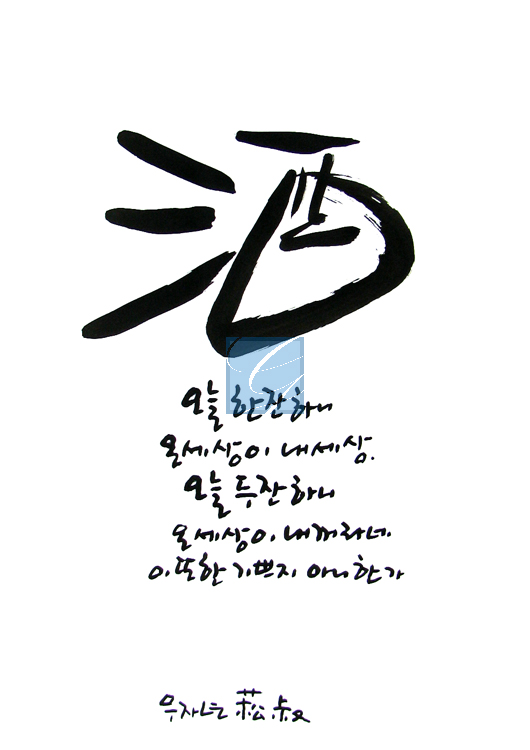 酒
오늘 한잔하니
온세상이 내세상.
오늘 두잔하니
온세상이 내꺼라네.
이또한 기쁘지 아니한가
무자년 菘叔